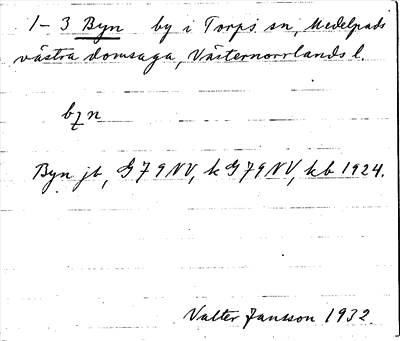 1-3 Byn by i Torps sn, Medelpads
västra domsaga, Västernorrlands l.
Byn jb, G79NV, k G79NV, kb 1924.
Valter Jansson 1932